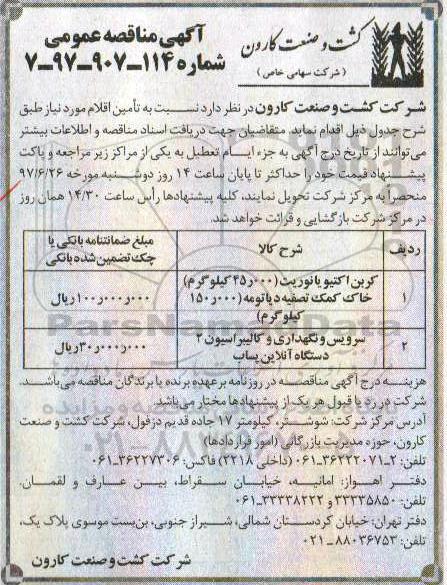 کشت و صنعت کارون
(شرکت سهامی خاص)
آگهی مناقصه عمومی
شماره ۱۱۴-۹۰۷-۹۷-۷
شرکت کشت و صنعت کارون در نظر دارد نسبت به تأمین اقلام مورد نیاز طبق
شرح جدول ذیل اقدام نماید. متقاضیان جهت دریافت اسناد مناقصه و اطلاعات بیشتر
می‌توانند از تاریخ درج آگهی به جزء ایام تعطیل به یکی از مراکز زیر مراجعه و پاکت
پیشنهاد قیمت خود را حداکثر تا پایان ساعت ۱۴ روز دوشنبه مورخه ۹۷/۶/۲۶
منحصراً به مرکز شرکت تحویل نمایند، کلیه پیشنهادها رأس ساعت ۱۴/۳۰ همان روز
در مرکز شرکت بازگشایی و قرائت خواهد شد.
ردیف شرح کالا مبلغ ضمانتنامه بانکی یا چک تضمین شده بانکی
۱ کربن اکتیو یا نوریت (۴۵٫۰۰۰ کیلوگرم) خاک کمک تصفیه دیاتومه (۱۵۰٫۰۰۰ کیلوگرم) ۱۰۰٫۰۰۰٫۰۰۰ ریال
۲ سرویس و نگهداری و کالیبراسیون ۲ دستگاه آنلاین پساب ۳۰٫۰۰۰٫۰۰۰ ریال
هزینه درج آگهی مناقصه در روزنامه بر عهده برنده یا برندگان مناقصه می‌باشد.
شرکت در رد یا قبول هر یک از پیشنهادها مختار می‌باشد.
آدرس مرکز شرکت: شوشتر، کیلومتر ۱۷ جاده قدیم دزفول، شرکت کشت و صنعت
کارون، حوزه مدیریت بازرگانی (امور قراردادها)
تلفن: ۲-۳۶۲۲۲۰۷۱-۰۶۱ (داخلی ۲۲۱۸) فاکس: ۳۶۲۲۷۳۰۶-۰۶۱
دفتر اهواز: امانیه، خیابان سقراط، بین عارف و لقمان.
تلفن: ۳۳۳۳۵۸۵۰ و ۳۳۳۳۸۲۲۲-۰۶۱
دفتر تهران: خیابان کردستان شمالی، شیراز جنوبی، بن‌بست موسوی پلاک یک،
تلفن: ۸۸۰۳۶۷۵۳-۰۲۱
شرکت کشت و صنعت کارون
ParsNamadData